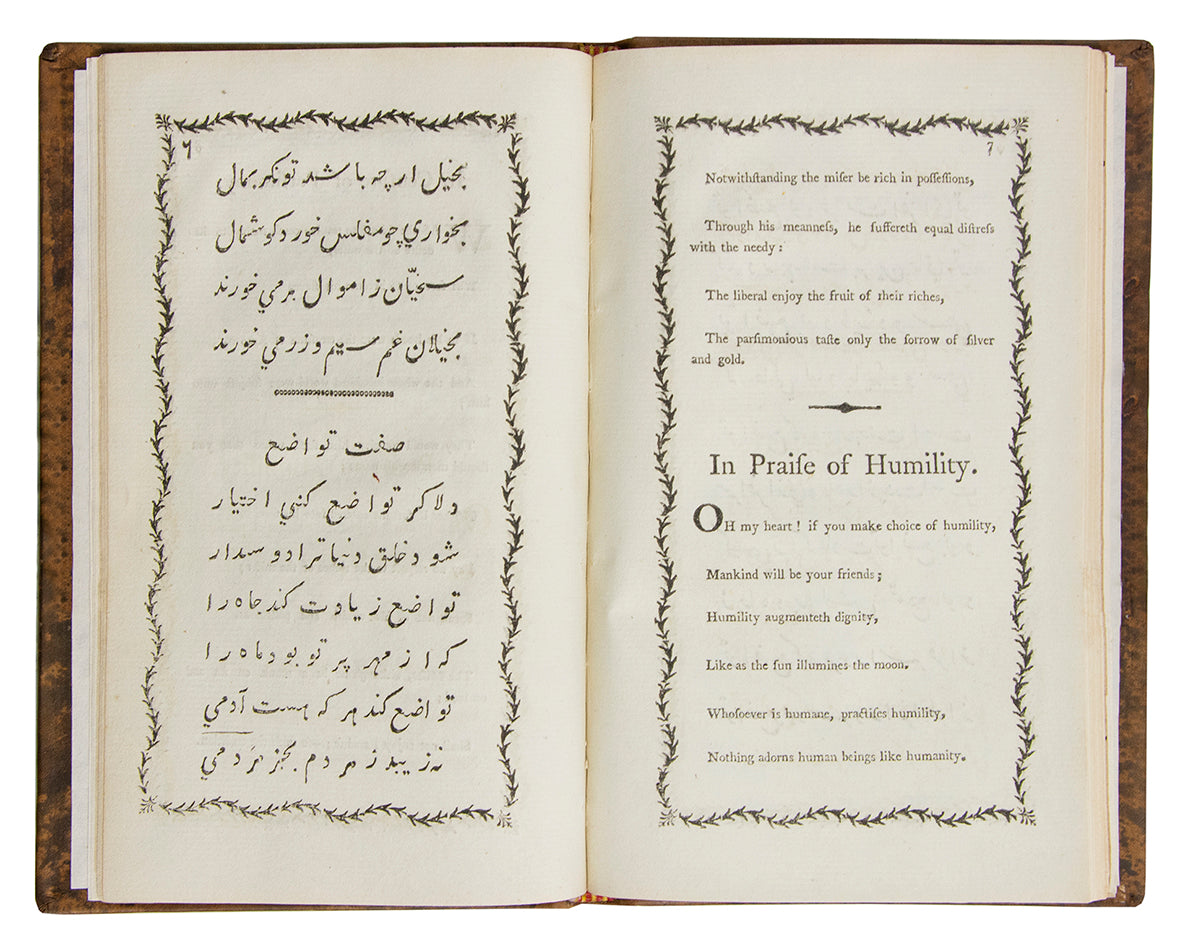 ٦
بخيل ار چه باشد تونكر بمال
بخواري چو مفلس خورد كوشمال
سخيّان ز اموال بر مي خورند
بخيلان غم سيم و زر مي خورند
صفت تواضع
دلا كر تواضع كني اختيار
شود خلق دنيا ترا دوسدار
تواضع زيادت كند جاه را
كه از مهر پر تو بود ماه را
تواضع كند هر كه هست آدمي
نه زيبد ز مردم بجز مردمي
7
Notwithſtanding the miſer be rich in poſſeſſions,
Through his meanneſs, he ſuffereth equal diſtreſs
with the needy:
The liberal enjoy the fruit of their riches,
The parſimonious taſte only the ſorrow of ſilver
and gold.
In Praiſe of Humility.
OH my heart! if you make choice of humility,
Mankind will be your friends;
Humility augmenteth dignity,
Like as the ſun illumines the moon.
Whoſoever is humane, practiſes humility,
Nothing adorns human beings like humanity.